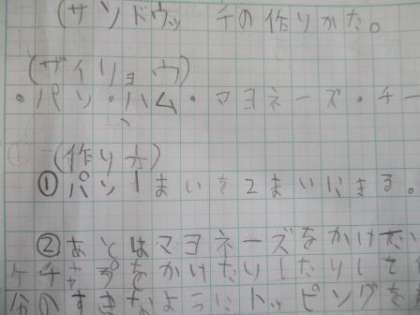 (サンドウッチの作りかた。
(ザイリョウ)
・パン・ハム・マヨネーズ・チー
(作り方)
① パン1まいを2まいにきる。
② あとはマヨネーズをかけた
ケチャプをかけたりしたりして
分のすきなようにトッピングを